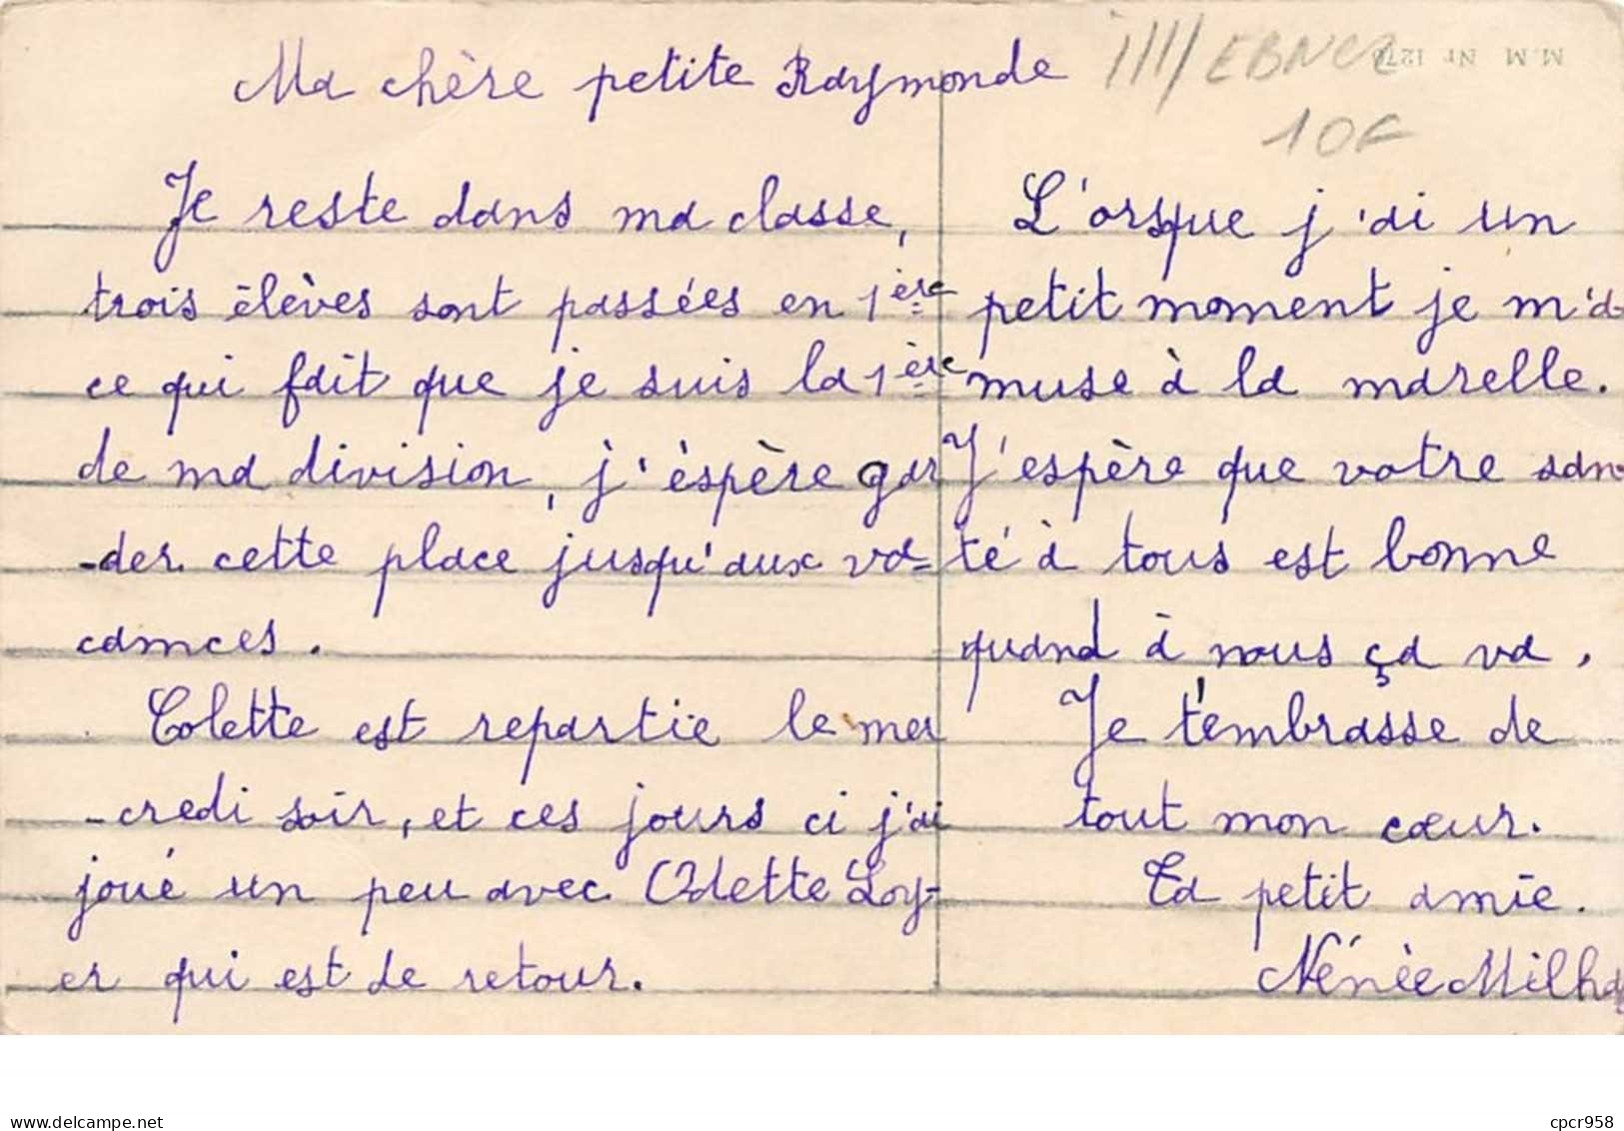 Ma chère petite Raymonde
Je reste dans ma classe,
trois élèves sont passées en 1ère
ce qui fait que je suis la 1ère
de ma division, j'éspère gar
-der cette place jusqu'aux va-
cances.
Colette est repartie le mer
-credi soir, et ces jours ci j'ai
joué un peu avec Odette Loy-
er qui est de retour.
L'orsque j'ai un
petit moment je m'a-
muse à la marelle.
J'espère que votre san-
té à tous est bonne
quand à nous ça va.
Je t'embrasse de
tout mon cœur.
Ta petit amie.
Nénée
10F
M.M Nr 127
delcampe.net
cpcr958